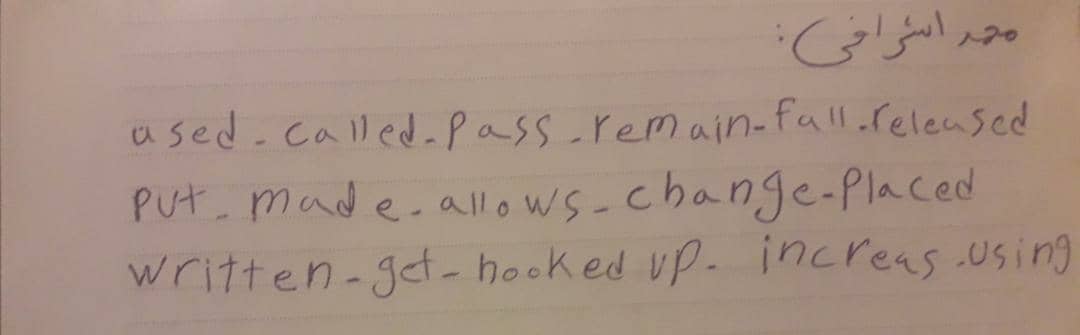 محمد اشرافی:
used - called - pass - remain - fall - released
put - made - allows - change - Placed
written - get - hooked up - increas - using